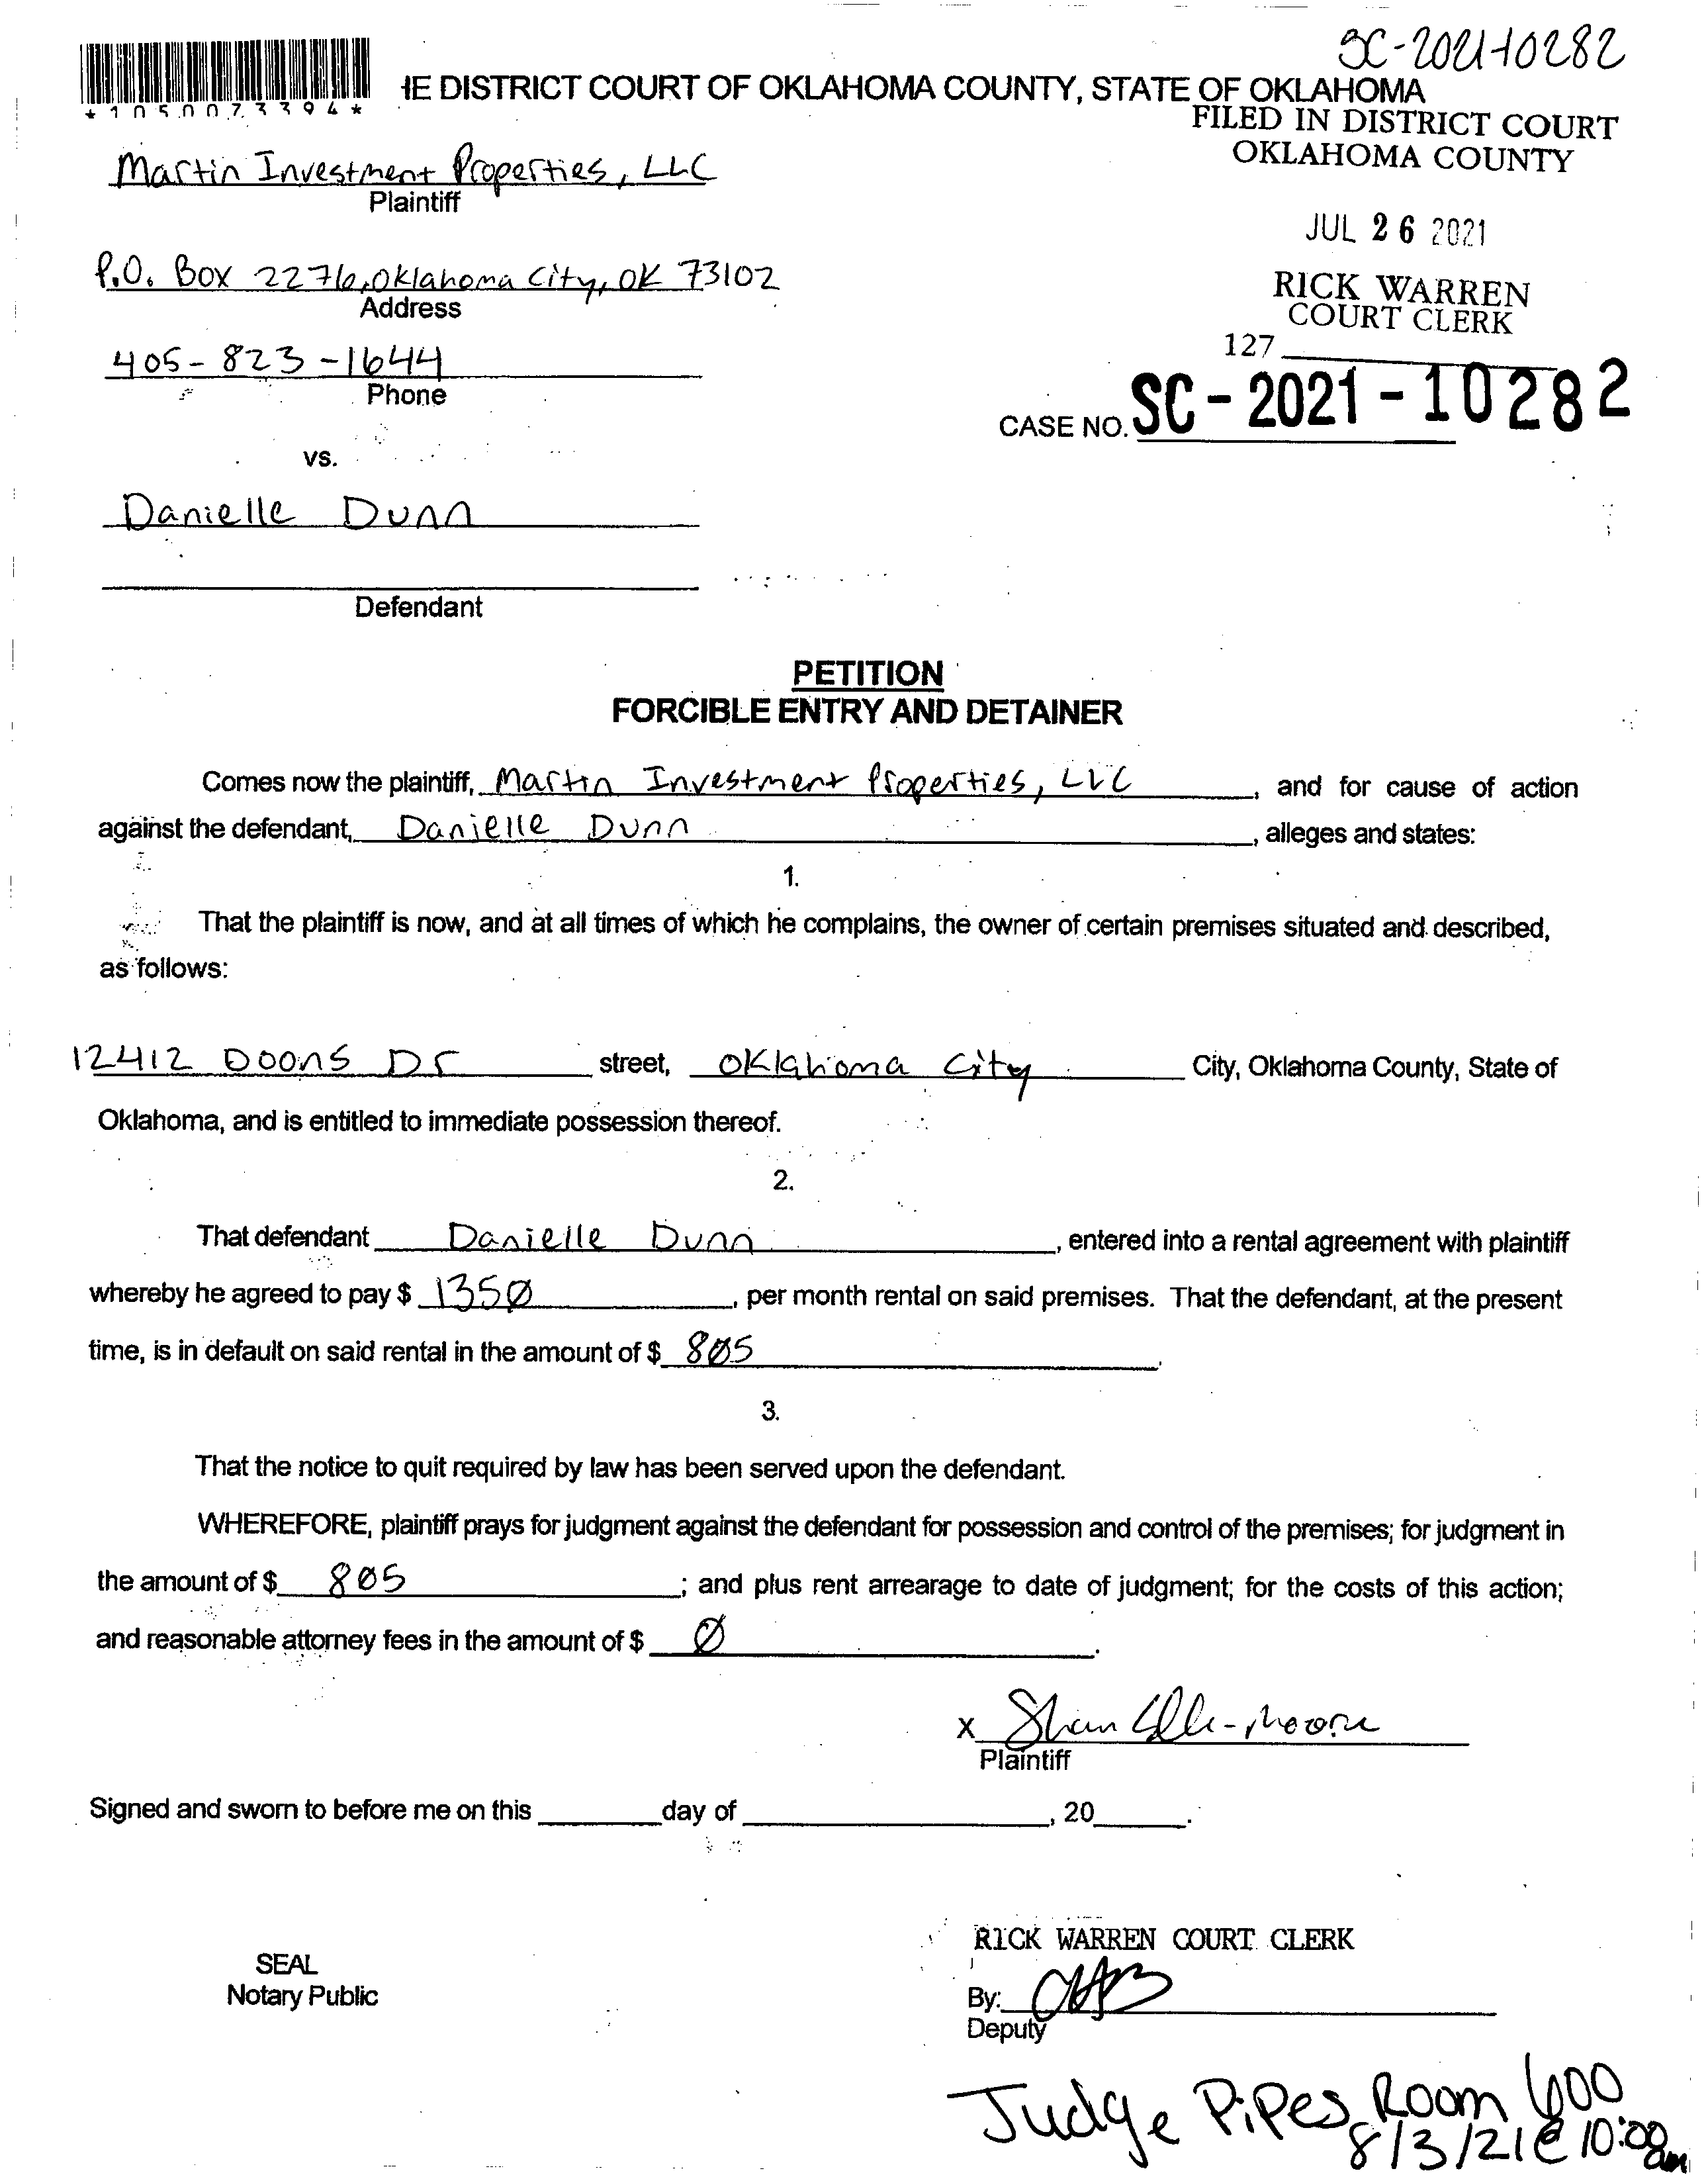 SC-2021-10282
*1050073394*
IE DISTRICT COURT OF OKLAHOMA COUNTY, STATE OF OKLAHOMA
FILED IN DISTRICT COURT
OKLAHOMA COUNTY
Martin Investment Properties, LLC
Plaintiff
JUL 26 2021
P.O. Box 2276, Oklahoma City, OK 73102
Address
RICK WARREN
COURT CLERK
127
405-823-1644
Phone
CASE NO. SC-2021-10282
vs.
Danielle Dunn
Defendant
PETITION
FORCIBLE ENTRY AND DETAINER
Comes now the plaintiff, Martin Investment Properties, LLC, and for cause of action
against the defendant, Danielle Dunn, alleges and states:
1.
That the plaintiff is now, and at all times of which he complains, the owner of certain premises situated and described,
as follows:
12412 Doons Dr street, Oklahoma City City, Oklahoma County, State of
Oklahoma, and is entitled to immediate possession thereof.
2.
That defendant Danielle Dunn, entered into a rental agreement with plaintiff
whereby he agreed to pay $ 1350, per month rental on said premises. That the defendant, at the present
time, is in default on said rental in the amount of $ 805.
3.
That the notice to quit required by law has been served upon the defendant.
WHEREFORE, plaintiff prays for judgment against the defendant for possession and control of the premises; for judgment in
the amount of $ 805; and plus rent arrearage to date of judgment; for the costs of this action;
and reasonable attorney fees in the amount of $ Ø.
X
Plaintiff
Signed and sworn to before me on this ______ day of ______________, 20_____.
RICK WARREN COURT CLERK
SEAL
Notary Public
By:
Deputy
Judge Pipes Room 600
8/3/21 @ 10:00am